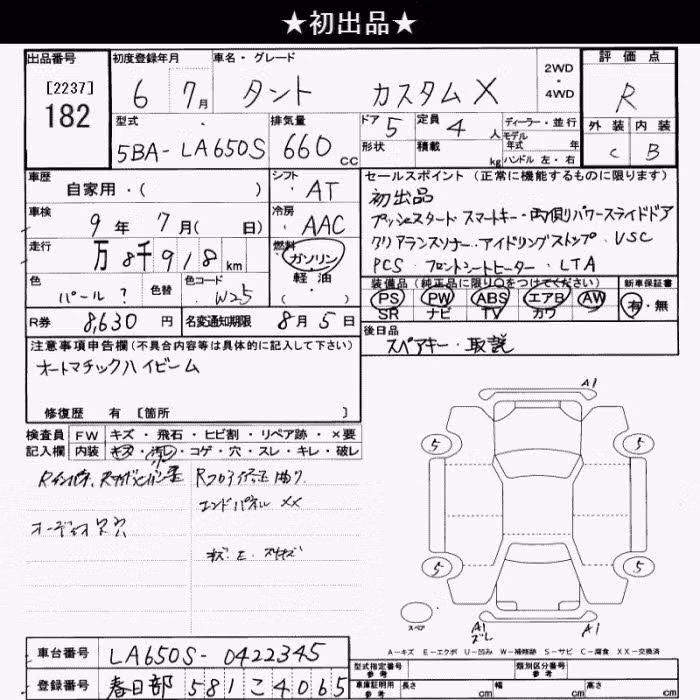 ★初出品★
出品番号 初度登録年月 車名・グレード 2WD・4WD 評価点
[2237] 182 6 7月 タント カスタムX R
型式 排気量 ドア 5 定員 4人 ディーラー・並行 外装 内装
モデル年式 年
5BA-LA650S 660cc 形状 積載 kg ハンドル 左・右 C B
車歴 シフト セールスポイント(正常に機能するものに限ります)
自家用・( ) AT 初出品
車検 冷房 プッシュスタート スマートキー・両側パワースライドドア
9年 7月( 日) AAC クリアランスソナー・アイドリングストップ・VSC
走行 燃料 PCS・フロントシートヒーター・LTA
万8千918km ガソリン 軽油 ( )
装備品(純正品に限り○をつけてください) 新車保証書
色 色替 色コード PS PW ABS エアB AW 有・無
パール? W25 SR ナビ TV カワ
R券 8,630円 名変通知期限 8月5日 後日品
スペアキー・取説
注意事項申告欄(不具合内容等は具体的に記入して下さい)
オートマチックハイビーム
修復歴 有 [箇所 ]
検査員 FW キズ・飛石・ヒビ割・リペア跡・×要
記入欄 内装 キズ・汚レ・コゲ・穴・スレ・キレ・破レ
エンドパネル XX
A1
5 5
5 5
スペア
A1 ズレ A1
A-キズ E-エクボ U-凹み W-補修跡 S-サビ C-腐食 XX-交換済
車台番号 LA650S-0422345
型式指定番号 参考 類別区分番号 参考
登録番号 春日部 581 こ 4065
車庫証明用 参考 長さ cm 幅 cm 高さ cm